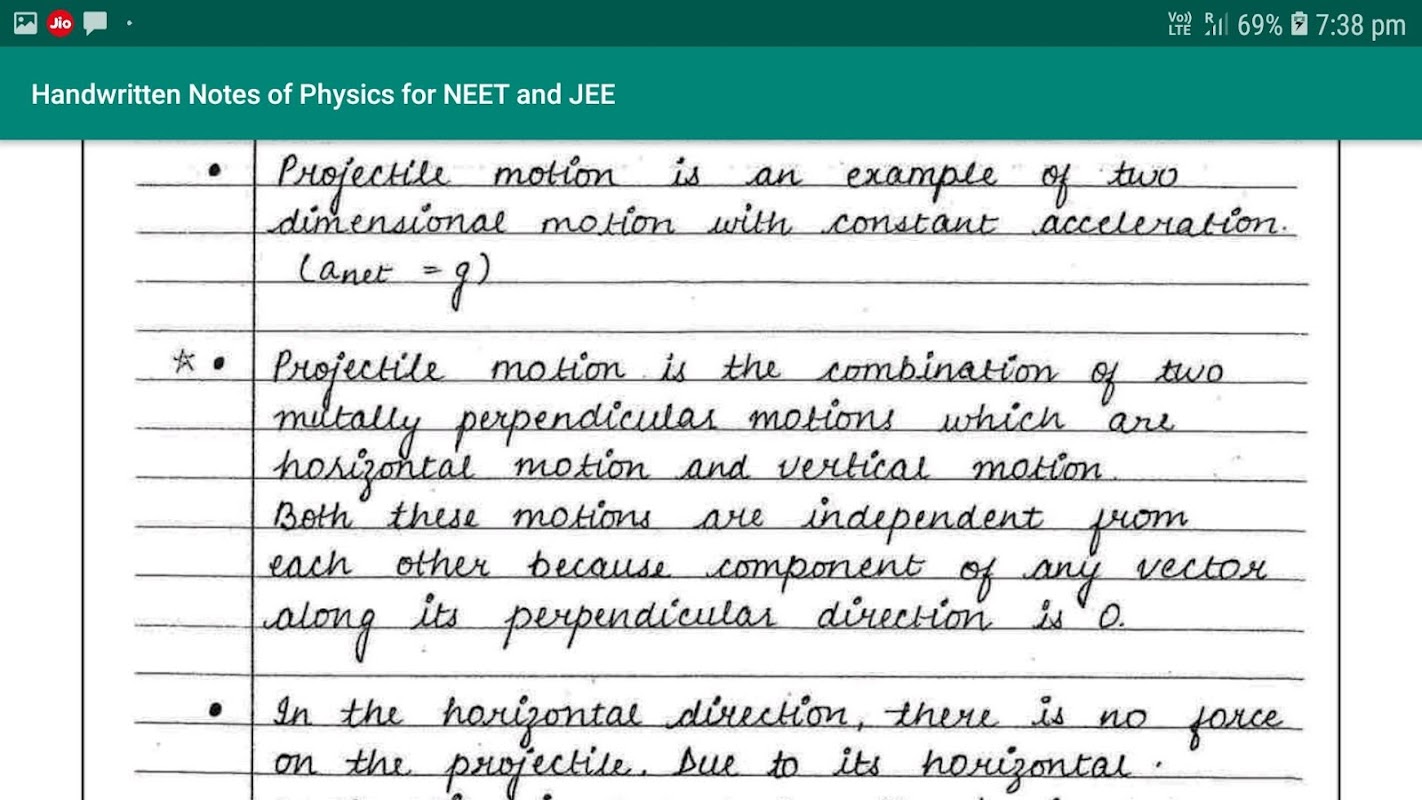 Jio
Vo)) LTE R 69% 7:38 pm
Handwritten Notes of Physics for NEET and JEE
• Projectile motion is an example of two
dimensional motion with constant acceleration.
(anet = g)
☆ • Projectile motion is the combination of two
mutally perpendicular motions which are
horizontal motion and vertical motion.
Both these motions are independent from
each other because component of any vector
along its perpendicular direction is 0.
• In the horizontal direction, there is no force
on the projectile. Due to its horizontal